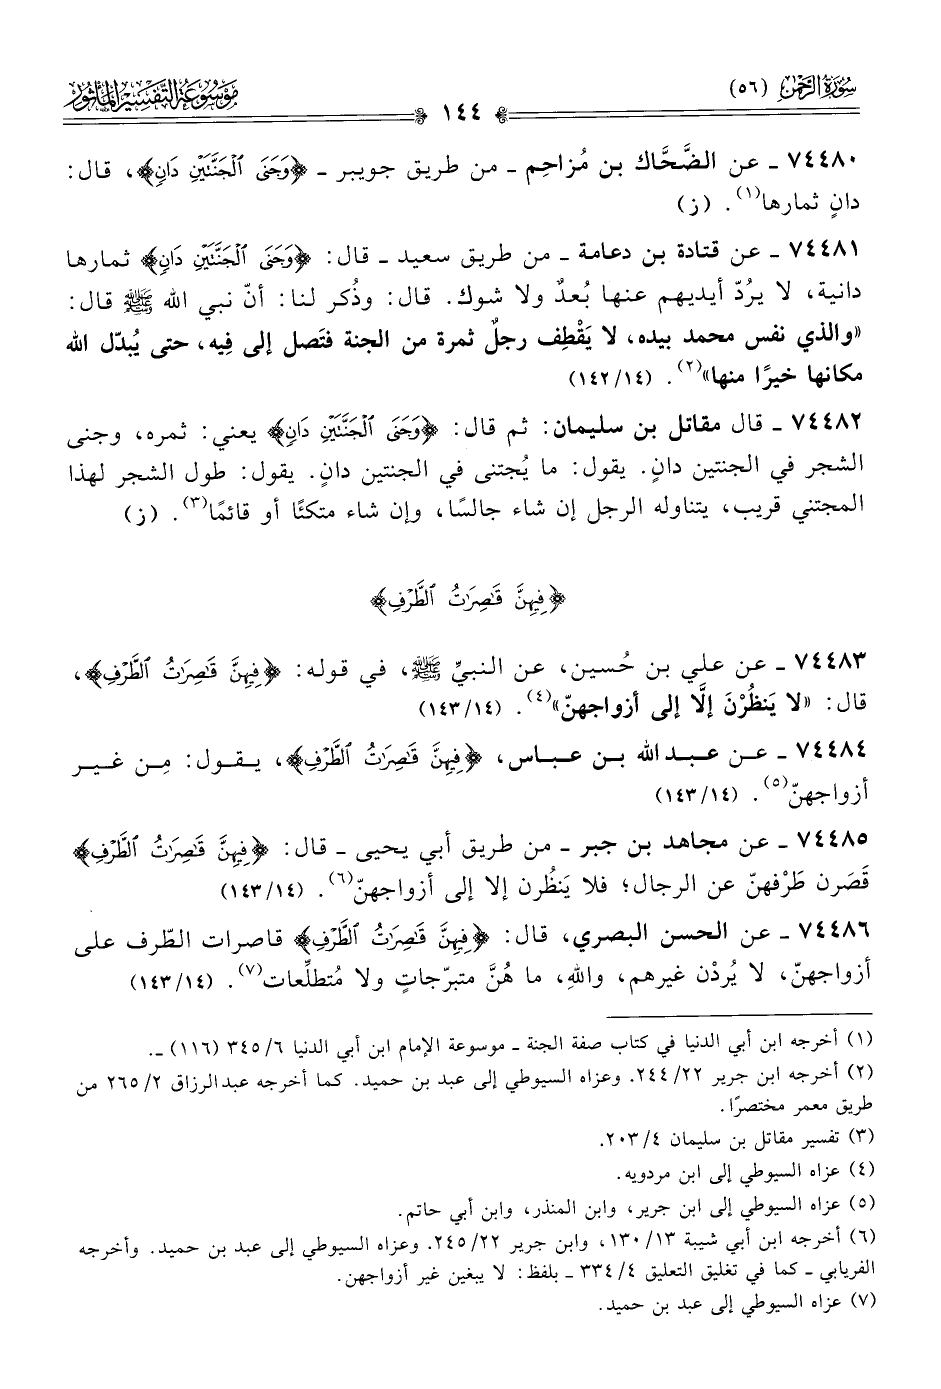 سُورَةُ الرَّحْمٰن (٥٦)
موسُوعَة التَّفْسِير المأثُور
١٤٤
٧٤٤٨٠ ـ عن الضَّحَّاك بن مُزاحِم ـ من طريق جويبر ـ ﴿وَجَنَى ٱلْجَنَّتَيْنِ دَانٍ﴾، قال:
دانٍ ثمارها(١). (ز)
٧٤٤٨١ ـ عن قتادة بن دعامة ـ من طريق سعيد ـ قال: ﴿وَجَنَى ٱلْجَنَّتَيْنِ دَانٍ﴾ ثمارها
دانية، لا يرُدّ أيديهم عنها بُعدٌ ولا شوك. قال: وذُكر لنا: أنّ نبي الله ﷺ قال:
«والذي نفس محمد بيده، لا يَقْطِف رجلٌ ثمرة من الجنة فتَصل إلى فِيه، حتى يُبدّل الله
مكانها خيرًا منها»(٢). (١٤٢/١٤)
٧٤٤٨٢ ـ قال مقاتل بن سليمان: ثم قال: ﴿وَجَنَى ٱلْجَنَّتَيْنِ دَانٍ﴾ يعني: ثمره، وجنى
الشجر في الجنتين دانٍ. يقول: ما يُجتنى في الجنتين دانٍ. يقول: طول الشجر لهذا
المجتني قريب، يتناوله الرجل إن شاء جالسًا، وإن شاء متكئًا أو قائمًا(٣). (ز)
﴿فِيهِنَّ قَٰصِرَٰتُ ٱلطَّرْفِ﴾
٧٤٤٨٣ ـ عن علي بن حُسين، عن النبيِّ ﷺ، في قوله: ﴿فِيهِنَّ قَٰصِرَٰتُ ٱلطَّرْفِ﴾،
قال: «لا يَنظُرْنَ إلَّا إلى أزواجهنّ»(٤). (١٤٣/١٤)
٧٤٤٨٤ ـ عن عبد الله بن عباس، ﴿فِيهِنَّ قَٰصِرَٰتُ ٱلطَّرْفِ﴾، يقول: مِن غير
أزواجهنّ(٥). (١٤٣/١٤)
٧٤٤٨٥ ـ عن مجاهد بن جبر ـ من طريق أبي يحيى ـ قال: ﴿فِيهِنَّ قَٰصِرَٰتُ ٱلطَّرْفِ﴾
قَصَرن طَرْفهنّ عن الرجال؛ فلا يَنظُرن إلا إلى أزواجهنّ(٦). (١٤٣/١٤)
٧٤٤٨٦ ـ عن الحسن البصري، قال: ﴿فِيهِنَّ قَٰصِرَٰتُ ٱلطَّرْفِ﴾ قاصرات الطّرف على
أزواجهنّ، لا يُردْن غيرهم، واللهِ، ما هُنَّ متبرّجاتٍ ولا مُتطلِّعات(٧). (١٤٣/١٤)
(١) أخرجه ابن أبي الدنيا في كتاب صفة الجنة ـ موسوعة الإمام ابن أبي الدنيا ٦/ ٣٤٥ (١١٦) ـ.
(٢) أخرجه ابن جرير ٢٢/ ٢٤٤. وعزاه السيوطي إلى عبد بن حميد. كما أخرجه عبدالرزاق ٢/ ٢٦٥ من
طريق معمر مختصرًا.
(٣) تفسير مقاتل بن سليمان ٤/ ٢٠٣.
(٤) عزاه السيوطي إلى ابن مردويه.
(٥) عزاه السيوطي إلى ابن جرير، وابن المنذر، وابن أبي حاتم.
(٦) أخرجه ابن أبي شيبة ١٣/ ١٣٠، وابن جرير ٢٢/ ٢٤٥. وعزاه السيوطي إلى عبد بن حميد. وأخرجه
الفريابي ـ كما في تغليق التعليق ٤/ ٣٣٤ ـ بلفظ: لا يبغين غير أزواجهن.
(٧) عزاه السيوطي إلى عبد بن حميد.